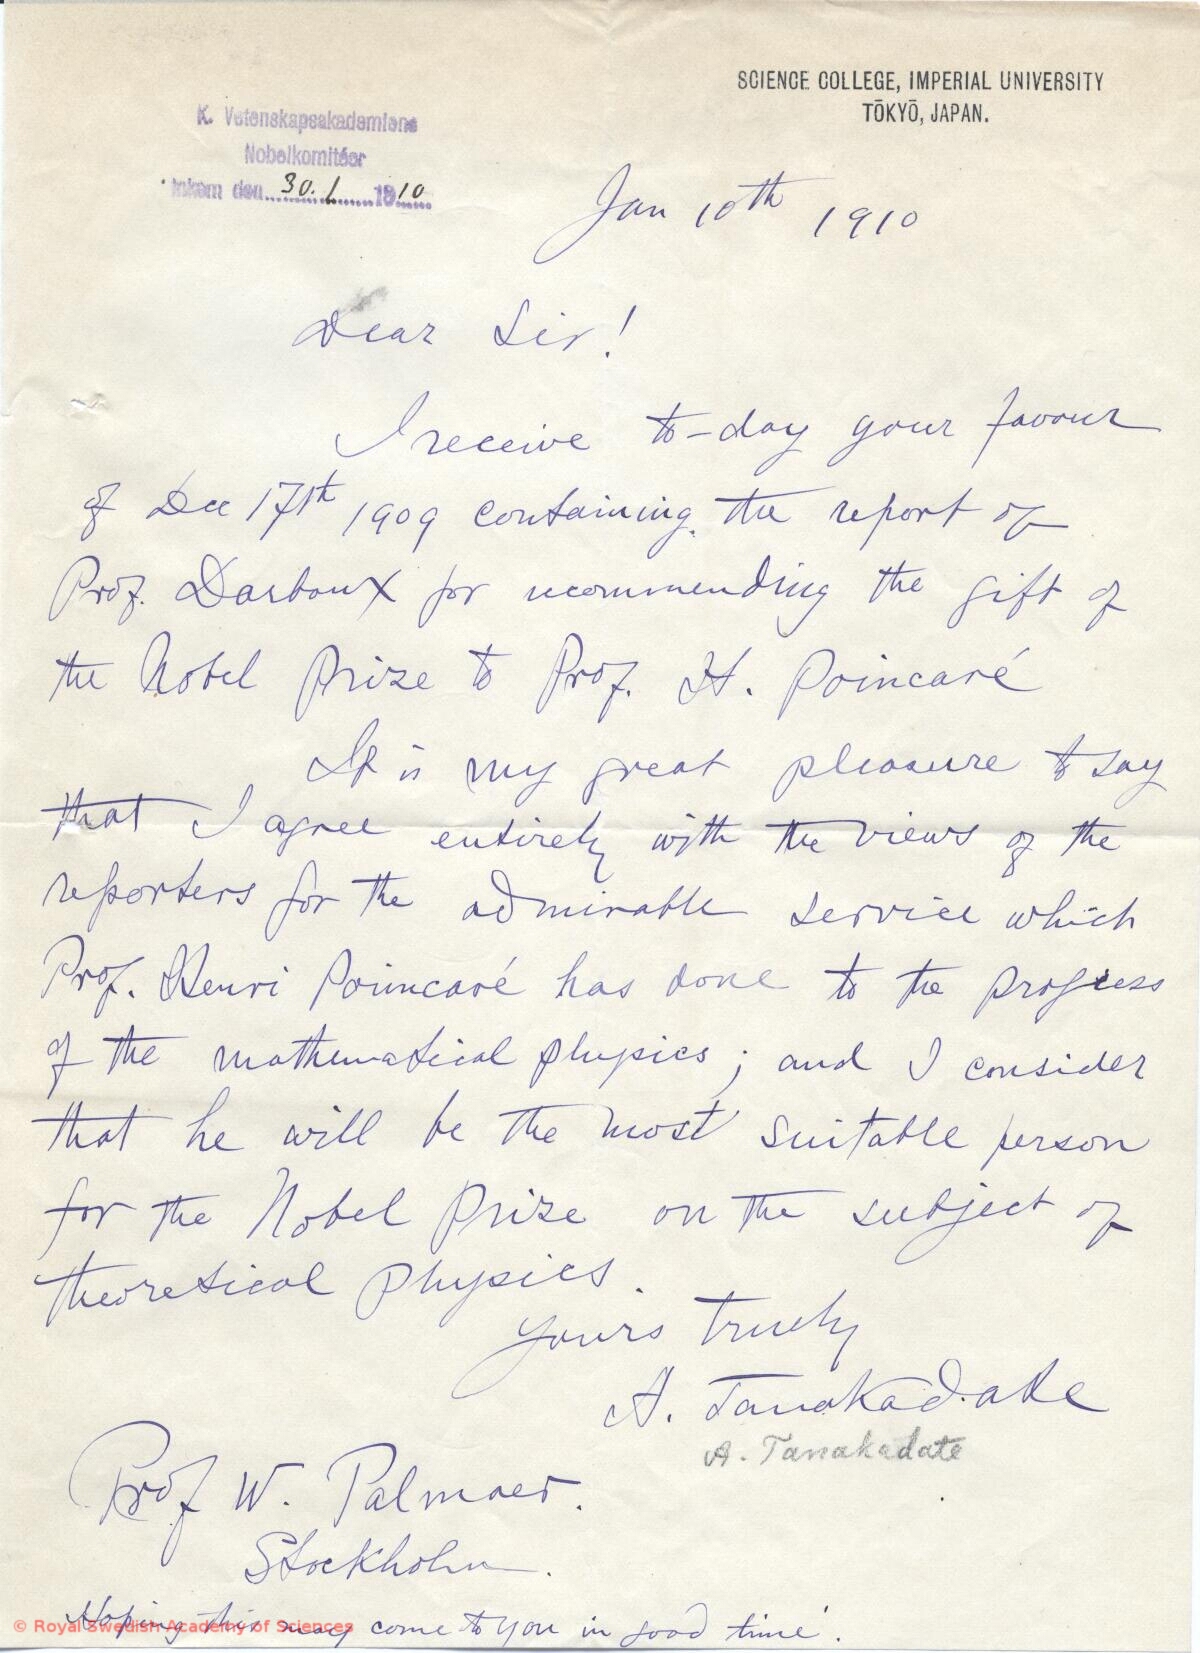 SCIENCE COLLEGE, IMPERIAL UNIVERSITY
TŌKYŌ, JAPAN.
K. Vetenskapsakademiens
Nobelkomitéer
Inkom den 30.1 1910
Jan 10th 1910
Dear Sir!
I receive to-day your favour
of Dec 17th 1909 containing the report of
Prof. Darboux for recommending the gift of
the Nobel Prize to Prof. H. Poincaré
It is my great pleasure to say
that I agree entirely with the views of the
reporters for the admirable service which
Prof. Henri Poincaré has done to the progress
of the mathematical physics; and I consider
that he will be the most suitable person
for the Nobel Prize on the subject of
theoretical physics.
Yours truly
A. Tanakadate
A. Tanakadate
Prof W. Palmaer.
Stockholm.
Hoping this may come to you in good time.
© Royal Swedish Academy of Sciences